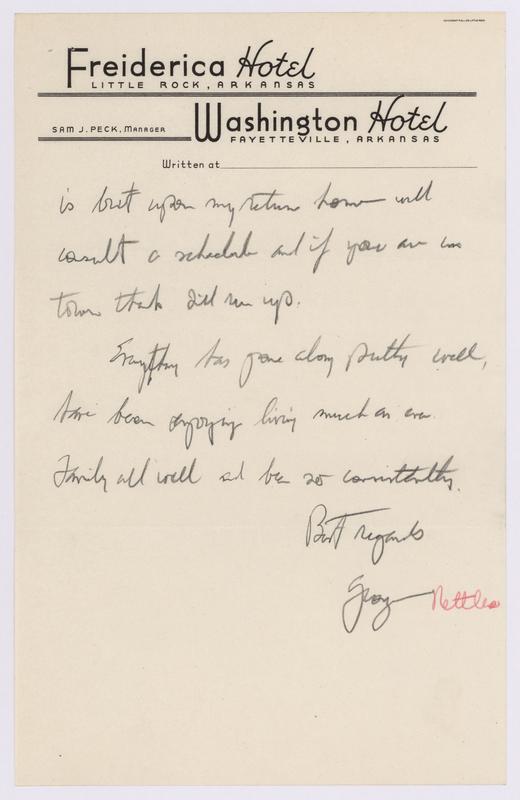 Freiderica Hotel
LITTLE ROCK, ARKANSAS
SAM J. PECK, MANAGER
Washington Hotel
FAYETTEVILLE, ARKANSAS
Written at
is but upon my return home will
consult a schedule and if you are in
town think I'll run up.
Everything has gone along pretty well,
have been enjoying living much as ever
Family all well and been so consistently.
Best regards
George Nettles